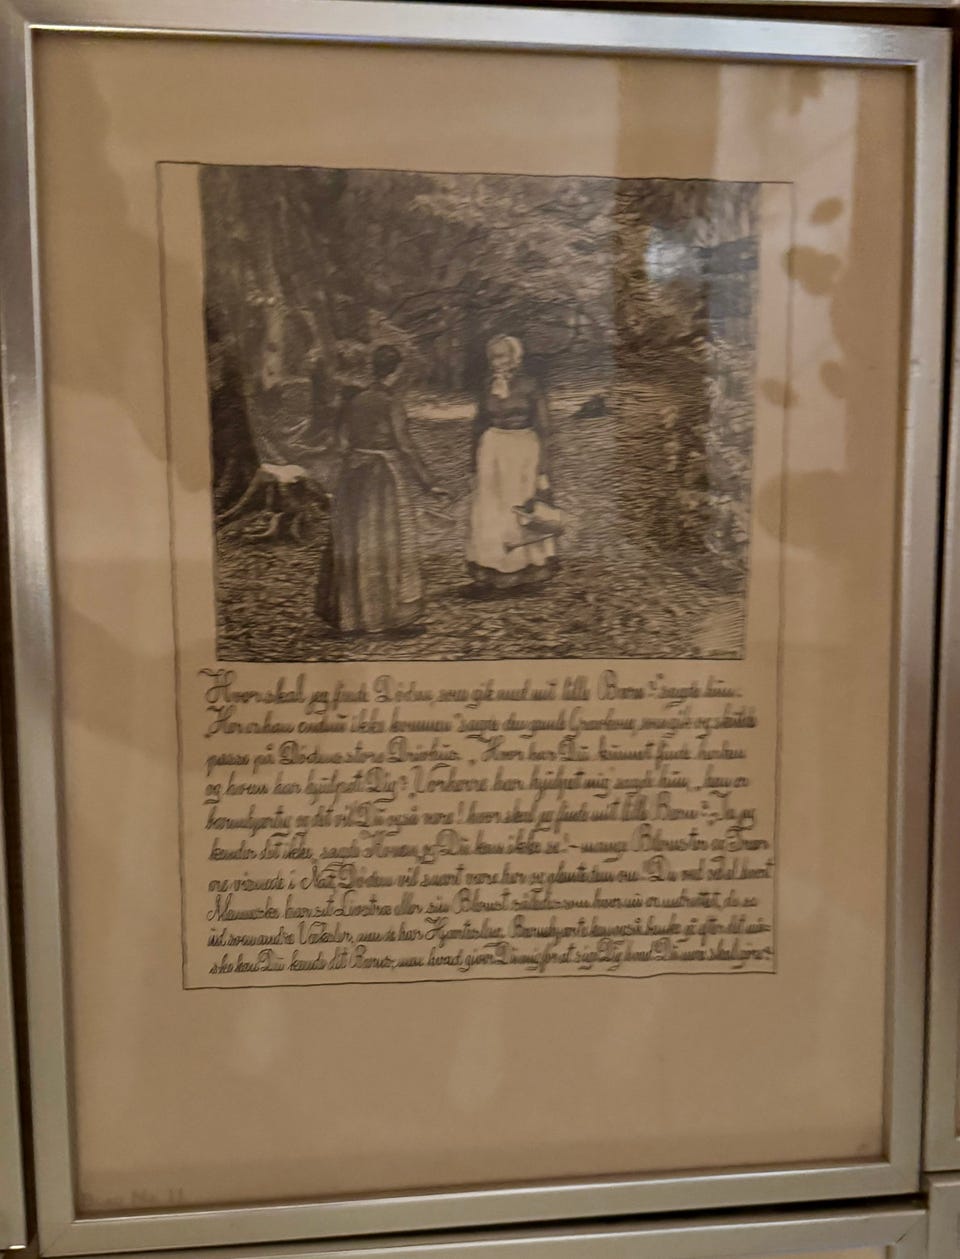 Hvor skal jeg finde Døden, som gik med mit lille Barn?" sagde hun.
Her er han endnu ikke kommen" sagde den gamle Gravkone, som gik og skulde
passe på Dødens store Drivhus. „Hvor har Du kunnet finde herhen
og hvem har hjulpet Dig?" „Vorherre har hjulpet mig sagde hun, „han er
barmhjertig og det vil Du også være! hvor skal jeg finde mit lille Barn?" „Ja jeg
kender det ikke, sagde Konen, og Du kan ikke se! – mange Blomster og Træer
ere visnede i Nat, Døden vil snart være her og plante dem om! Du ved vel at hvert
Menneske har sit Livstræ eller sin Blomst således som hver nu er indrettet, de se
ud som andre Vækster, men de har Hjerteslag. Barnehjerte kan også banke gå efter det må-
ske kan Du kende dit Barns, men hvad giver Du mig for at sige Dig hvad Du mere skal gøre?
No. 11